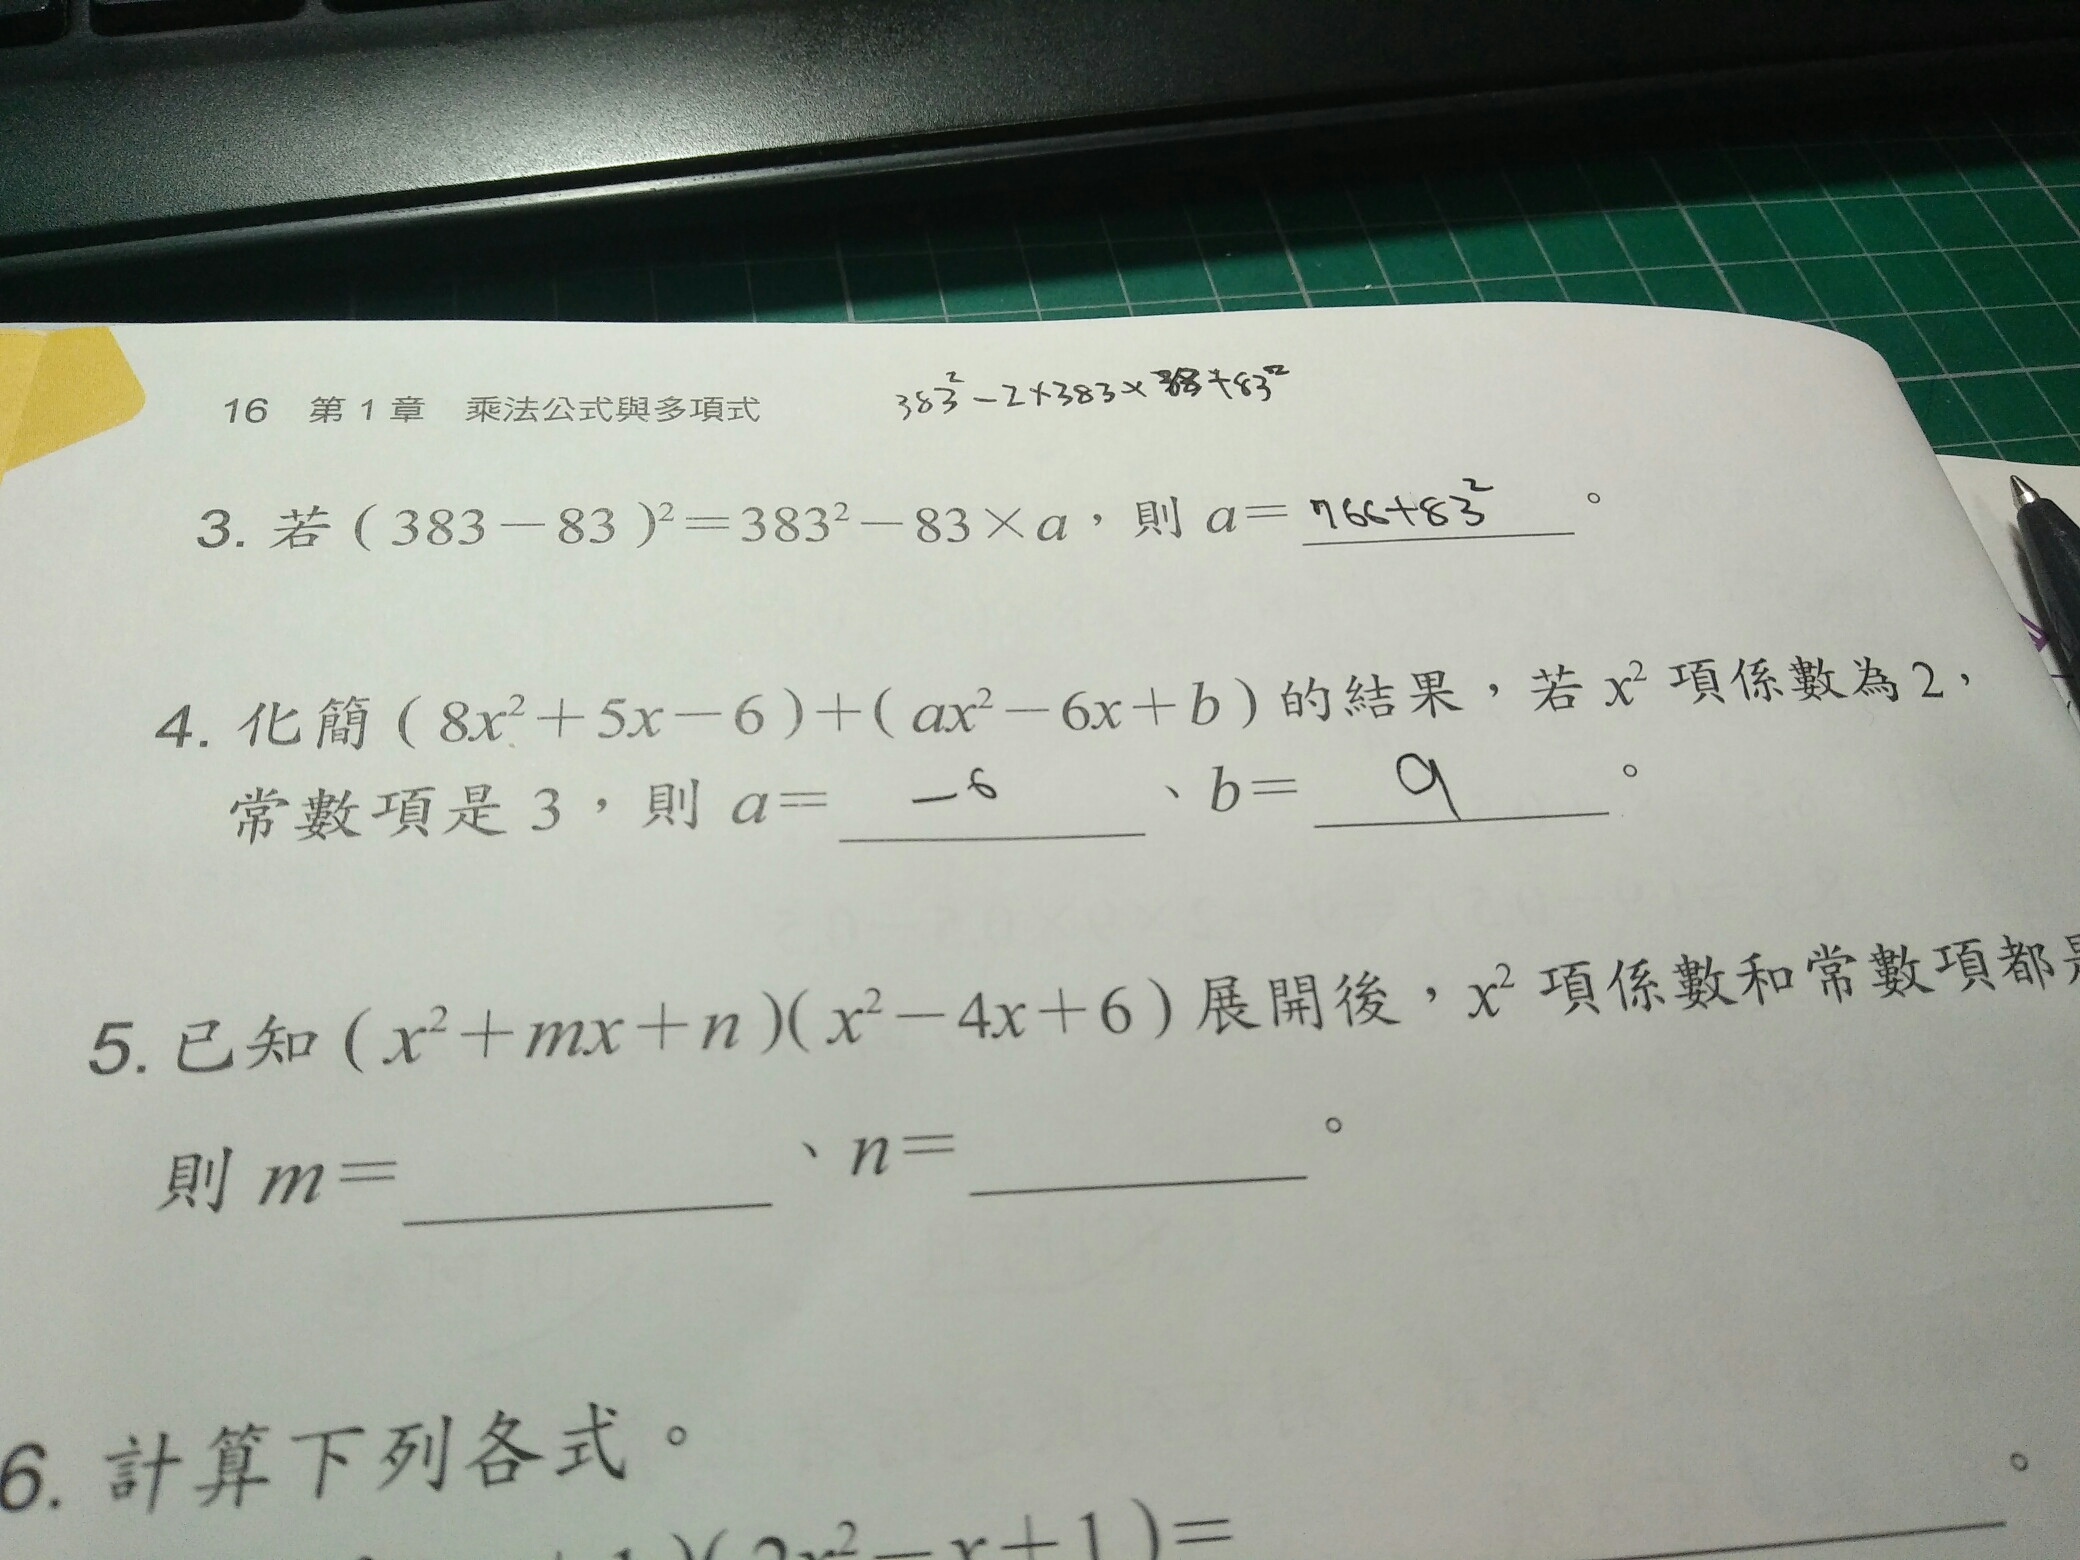 16 第1章 乘法公式與多項式 383²-2×383×83+83²
3. 若(383-83)²=383²-83×a,則 a= 766+83² 。
4. 化簡(8x²+5x-6)+(ax²-6x+b)的結果,若 x² 項係數為2,
常數項是3,則 a= -6 、b= 9 。
5. 已知(x²+mx+n)(x²-4x+6)展開後,x² 項係數和常數項都是
則 m= 、n= 。
6. 計算下列各式。
+1)(2x²-x+1)= 。